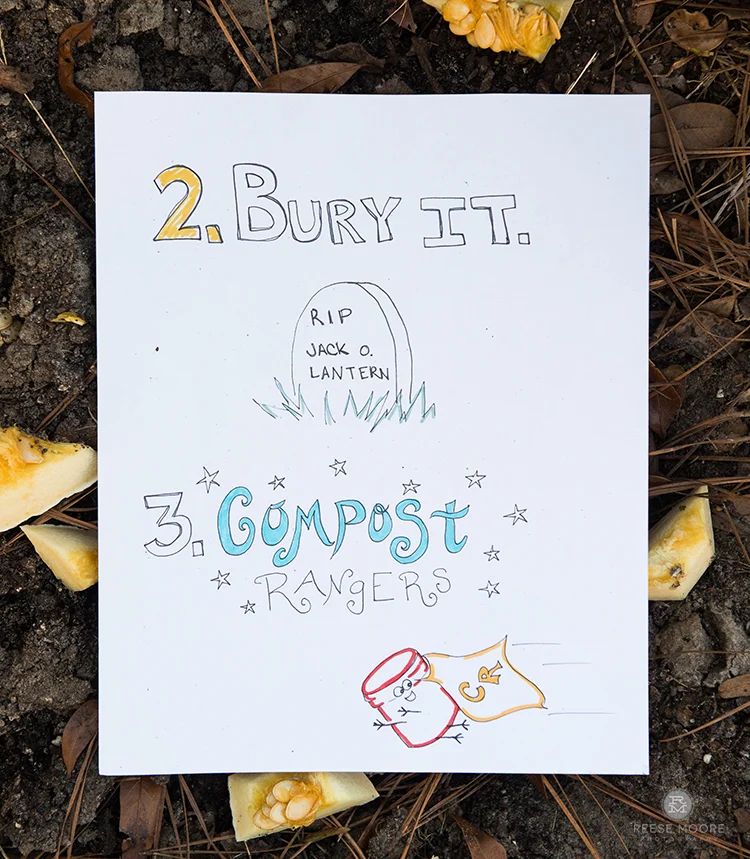 2. BURY IT.
RIP
JACK O.
LANTERN
3. COMPOST
RANGERS
CR
REESE MOORE
PHOTOGRAPHY